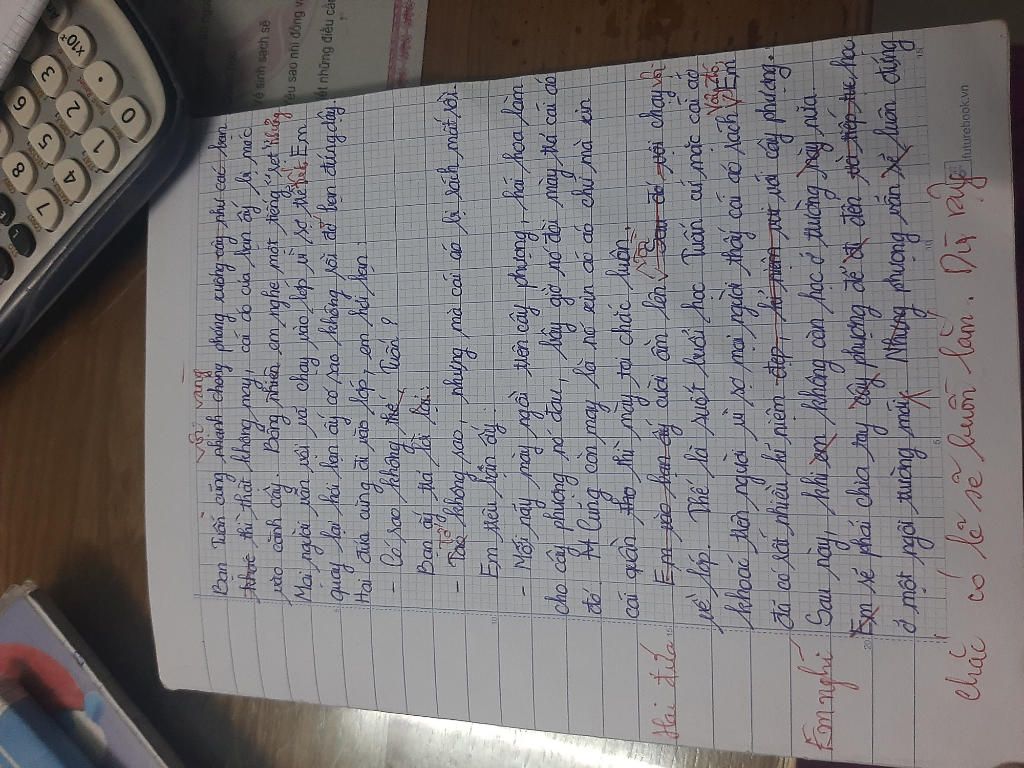 vội vàng
Bạn Tuấn cũng nhanh chóng phóng xuống cây như các bạn
khác thì thật không may, cái áo của bạn ấy bị mắc
vào cành cây. Bỗng nhiên em nghe một tiếng "rẹt" khủng
Mọi người vẫn vội vã chạy vào lớp vì sợ trễ tiết. Em
quay lại hỏi bạn ấy có sao không rồi đỡ bạn đứng dậy.
Hai đứa cùng đi vào lớp, em hỏi bạn:
- Có sao không thế, Tuấn?
Bạn ấy trả lời lại:
Tớ
- Tao không sao, nhưng mà cái áo bị rách mất rồi.
Em trêu bạn ấy:
- Mới nãy mày ngồi trên cây phượng, hái hoa làm
cho cây phượng nó đau, bây giờ nó đòi mày trả cái áo
đó. Cũng còn may là nó xin áo có chứ mà xin
cái quần thì mày tại chắc luôn.
Em vào bạn ấy cười ầm lên rồi sau đó với chạy
Hai đứa
về lớp. Thế là suốt buổi học Tuấn cứ mặc cái áo
khoác trên người vì sợ mọi người thấy cái áo rách. Em
đã có rất nhiều kỉ niệm đẹp, kỉ niệm vui với cây phượng.
Sau này, khi em không còn học ở trường này nữa.
Em nghĩ
Em sẽ phải chia tay cây phượng để đi đến và tiếp tục học
ở một ngôi trường mới. Nhưng phượng vẫn sẽ luôn đứng
chắc có lẽ sẽ buồn lắm. Dù vậy
futurebook.vn
vệ sinh sạch sẽ
yêu sao nhi đồng và
biết những điều cần
0
•
×10ˣ
2
3
5
6
4
8
7